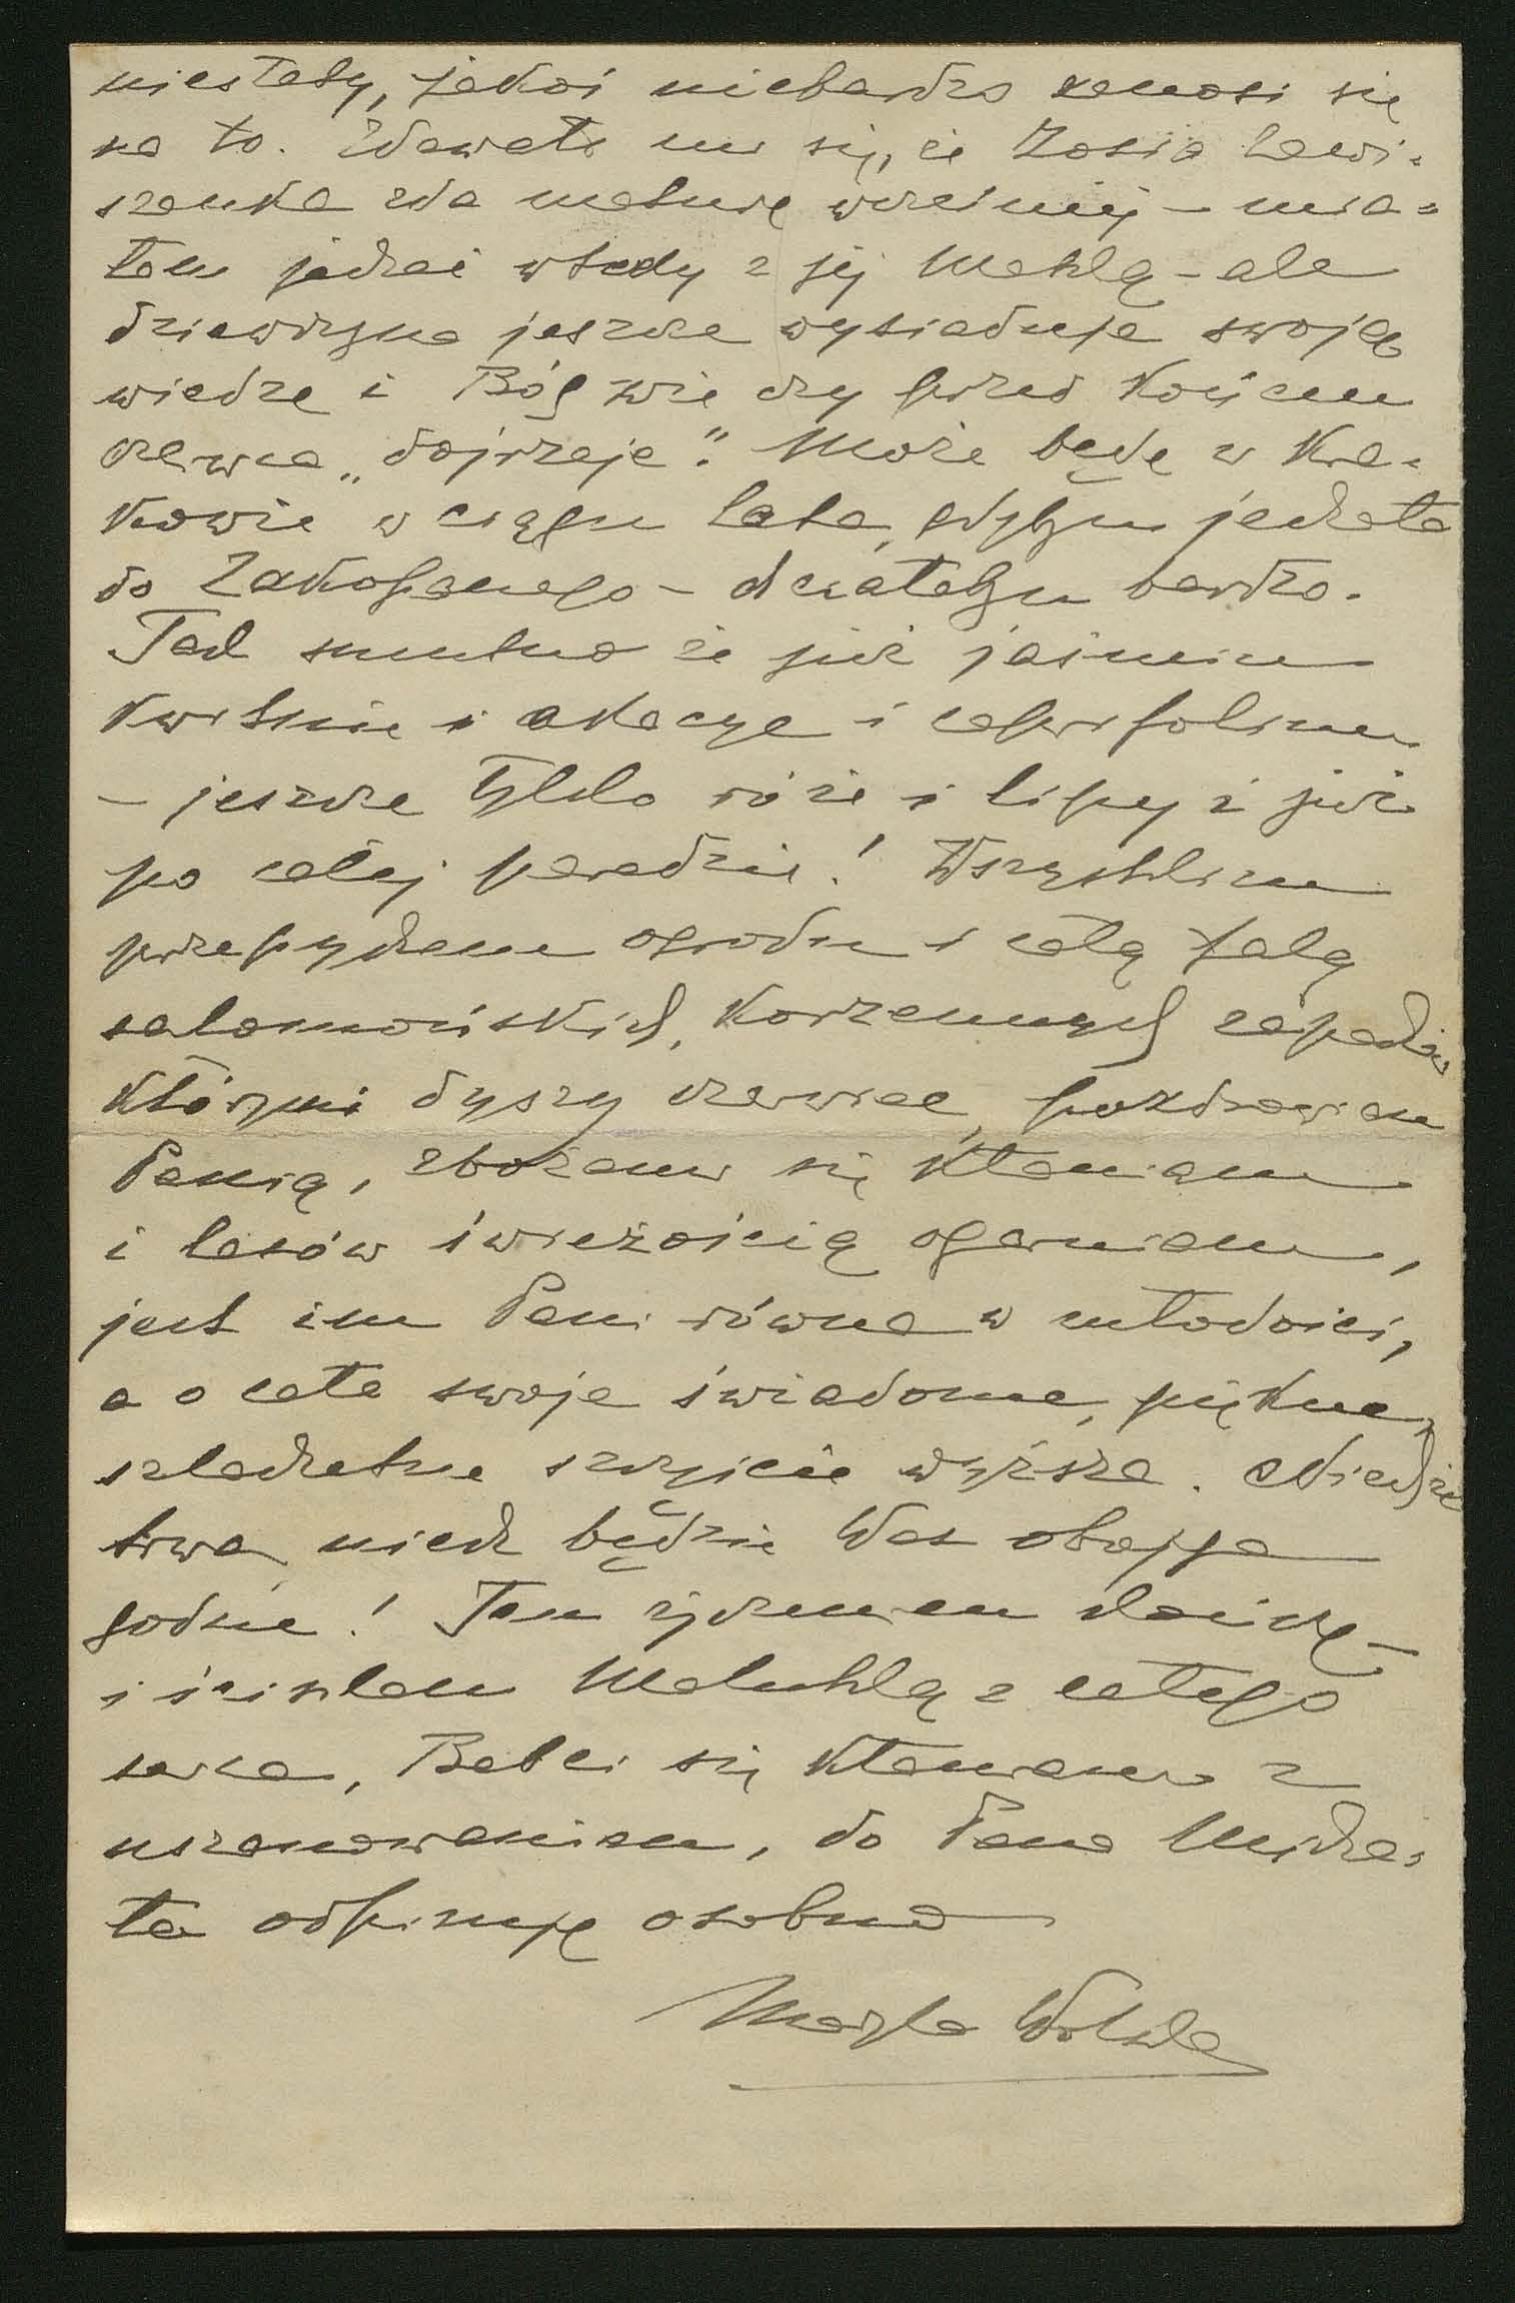 niestety, jakoś niebardzo zanosi się
na to. Zdawało mi się, że Zosia Zawi=
szanka zda maturę wcześniej – mia=
łam jechać wtedy z jej Matką – ale
dziewczyna jeszcze wysiaduje swoją
wiedzę i Bóg wie czy przed końcem
czerwca „dojrzeje". Może będę w Kra=
kowie w ciągu lata, gdybym jechała
do Zakopanego – chciałabym bardzo.
Tak smutno że już jaśmin
kwitnie i akacye i caprifolium
– jeszcze tylko róże i lipy i już
po całej paradzie! Wszystkim
przepychem ogrodu i całą falą
salomońskich, korzennych zapachów
którymi dyszy czerwiec, pozdrawiam
Panią, zbożami się kłaniam
i lasów świeżością ogarniam,
jest im Pani równa w młodości,
a o całe swoje świadome, piękne,
szlachetne szczęście wyższa. Niechże
trwa, niech będzie Was obojga
godne! Tem życzeniem kończę –
i ściskam Matuhlą z całego
serca, Babci się kłaniam z
uszanowaniem, do Pana Micha=
ła odpisuję osobno
Maryla Wolska